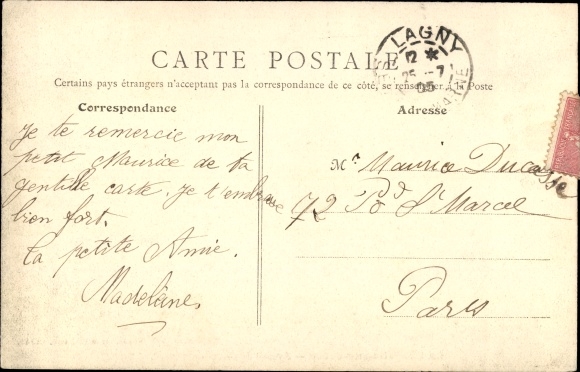 CARTE POSTALE
LAGNY
12 *
25 -7
05
MARNE
Certains pays étrangers n'acceptant pas la correspondance de ce côté, se renseigner à la Poste
Correspondance
Je te remercie mon
petit Maurice de ta
gentille carte. Je t'embrasse
bien fort.
Ta petite Amie.
Madeleine
Adresse
Mr Maurice Ducasse
72 Bd St Marcel
Paris